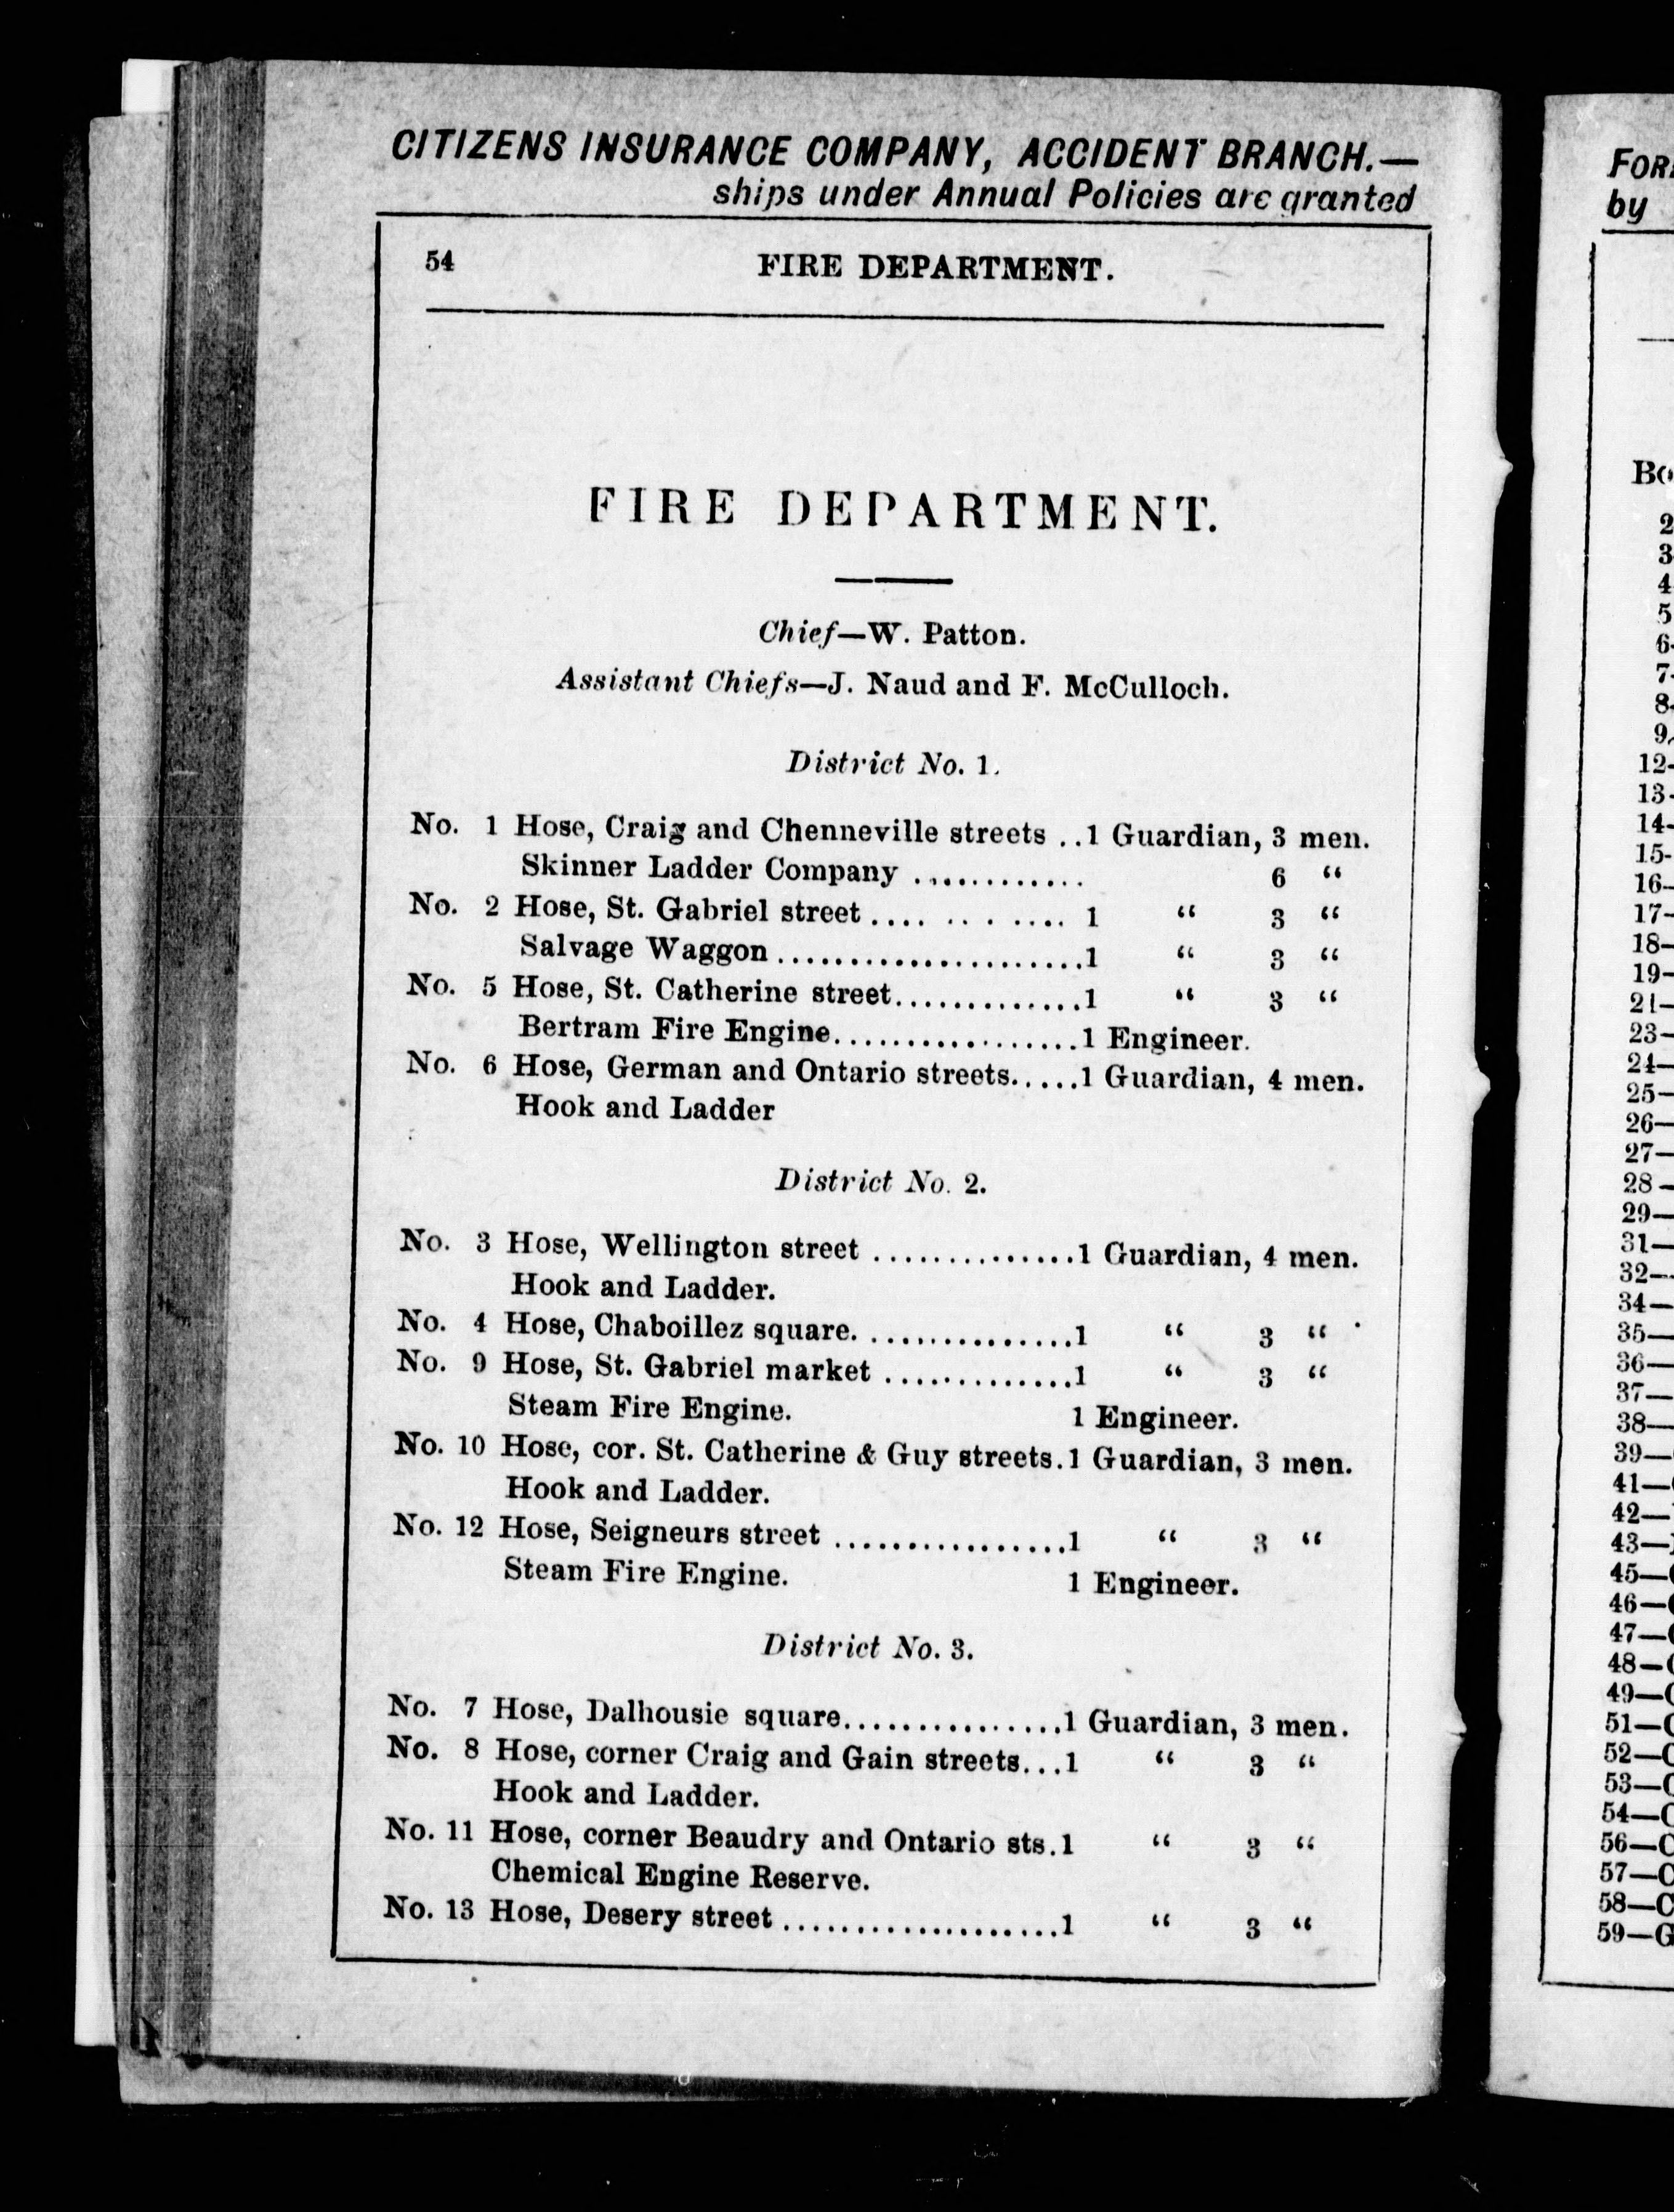 CITIZENS INSURANCE COMPANY, ACCIDENT BRANCH.—
ships under Annual Policies are granted
54 FIRE DEPARTMENT.
FIRE DEPARTMENT.
Chief—W. Patton.
Assistant Chiefs—J. Naud and F. McCulloch.
District No. 1.
No. 1 Hose, Craig and Chenneville streets ..1 Guardian, 3 men.
Skinner Ladder Company ............ 6 “
No. 2 Hose, St. Gabriel street .... .. . .... 1 “ 3 “
Salvage Waggon .....................1 “ 3 “
No. 5 Hose, St. Catherine street.............1 “ 3 “
Bertram Fire Engine.................1 Engineer.
No. 6 Hose, German and Ontario streets.....1 Guardian, 4 men.
Hook and Ladder
District No. 2.
No. 3 Hose, Wellington street ..............1 Guardian, 4 men.
Hook and Ladder.
No. 4 Hose, Chaboillez square. ..............1 “ 3 “
No. 9 Hose, St. Gabriel market .............1 “ 3 “
Steam Fire Engine. 1 Engineer.
No. 10 Hose, cor. St. Catherine & Guy streets.1 Guardian, 3 men.
Hook and Ladder.
No. 12 Hose, Seigneurs street ................1 “ 3 “
Steam Fire Engine. 1 Engineer.
District No. 3.
No. 7 Hose, Dalhousie square...............1 Guardian, 3 men.
No. 8 Hose, corner Craig and Gain streets...1 “ 3 “
Hook and Ladder.
No. 11 Hose, corner Beaudry and Ontario sts.1 “ 3 “
Chemical Engine Reserve.
No. 13 Hose, Desery street ...................1 “ 3 “
by
2
3
4
5
6-
7-
8-
9
12-
13-
14-
15-
16-
17-
18-
19-
21-
23-
24-
25-
26-
27-
28-
29-
31-
32-
34-
35-
36-
37-
38-
39-
41-
42-
43-
45-
46-
47-
48-
49-
51-
52-
53-
54-
56-
57-
58-
59-